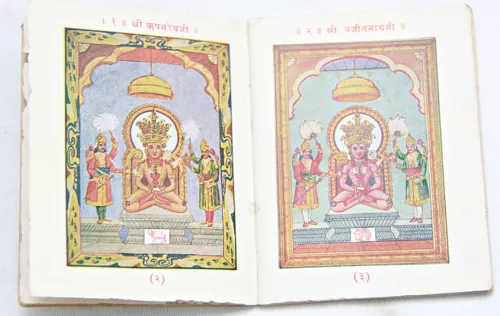 ॥ १ ॥ श्री ऋषभदेवजी
॥ २ ॥ श्री अजीतनाथजी
(२)
(३)